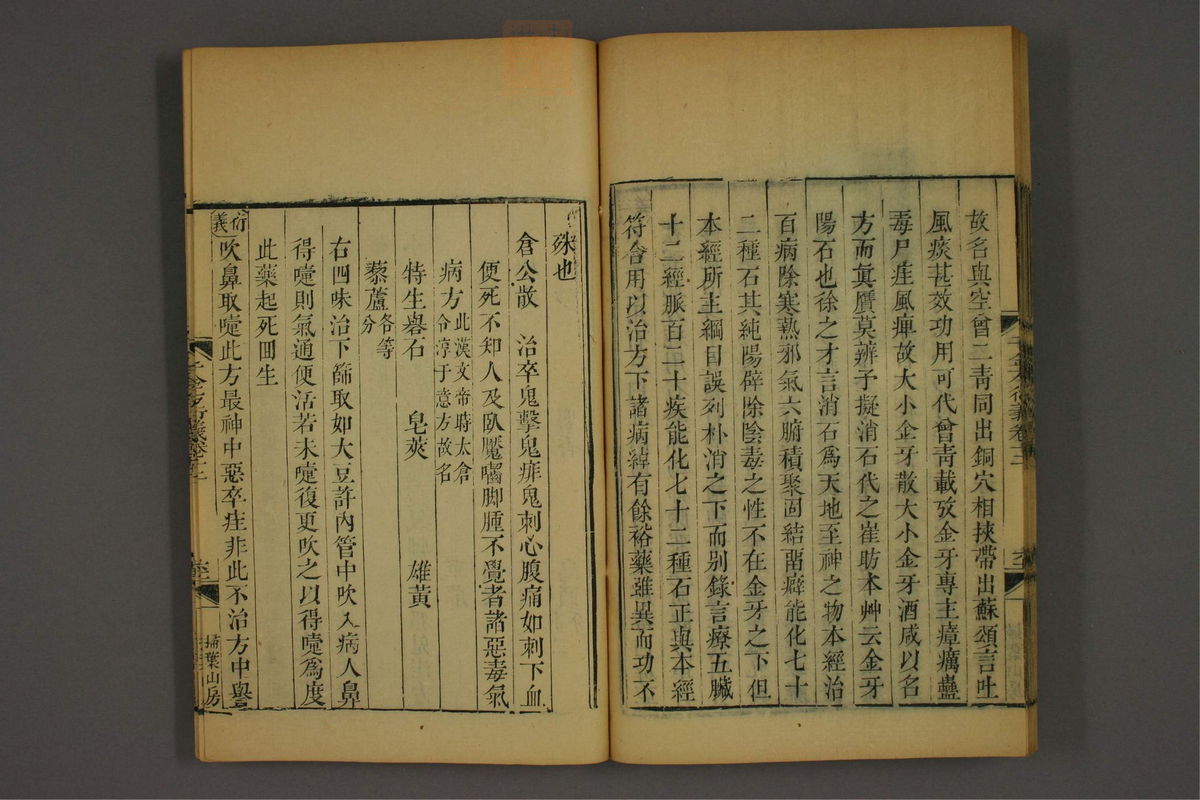 故名與空曾二靑同出銅穴相挾帶出蘇頌言吐
風痰甚效功用可代曾靑載攷金牙專主瘴癘蠱
毒尸疰風痺故大小金牙散大小金牙酒咸以名
方而眞贋莫辨予擬消石代之崔昉本艸云金牙
陽石也徐之才言消石爲天地至神之物本經治
百病除寒熱邪氣六腑積聚固結留癖能化七十
二種石其純陽辟除陰毒之性不在金牙之下但
本經所主綱目誤列朴消之下而別錄言療五臟
十二經脈百二十疾能化七十二種石正與本經
符合用以治方下諸病綽有餘裕藥雖異而功不
殊也
倉公散　治卒鬼擊鬼痱鬼刺心腹痛如刺下血
便死不知人及臥魘嚙脚腫不覺者諸惡毒氣
病方此漢文帝時太倉
令淳于意方故名
特生礜石　皂莢　雄黃
藜蘆各等
分
右四味治下篩取如大豆許內管中吹入病人鼻
得嚏則氣通便活若未嚏復更吹之以得嚏爲度
此藥起死囘生
衍義
吹鼻取嚏此方最神中惡卒疰非此不治方中礜
掃葉山房